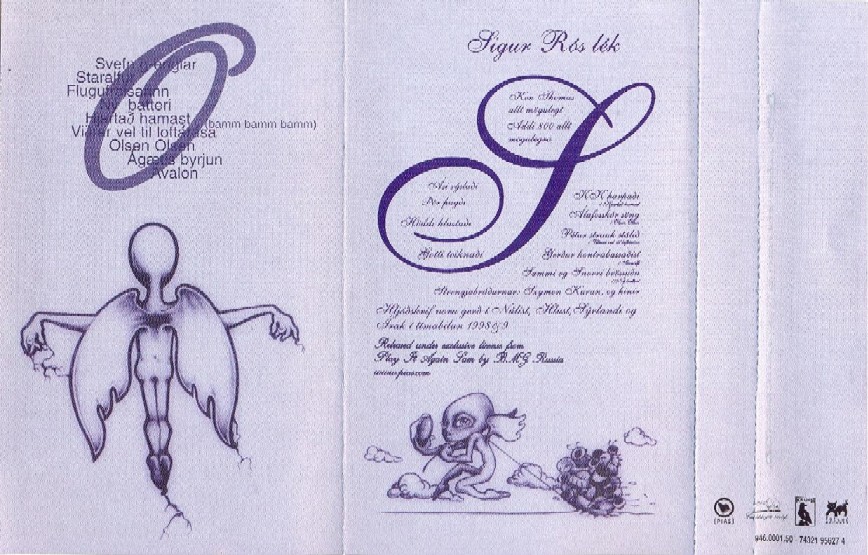 Svefn-g-englar
Starálfur
Flugufrelsarinn
Ný battorí
Hjartað hamast (bamm bamm bamm)
Viðrar vel til loftárása
Olsen Olsen
Ágætis byrjun
Avalon
Sigur Rós lék
Ken Thomas
allt mögulegt
Addi 800 allt
mögulegra
KK þanþadi
Álafosskór söng
Pétur strauk stálið
Gotti teiknaði
Gerður kontrabassaðist
Sammi og Snorri
Strengjabræðurnar: Szymon Kuran, og hinir
Hljóðskrif voru gerð í Núlist, Hlust, Sýrlandi og
Írak í tímabilun 1998&9
Released under exclusive license from
Play It Again Sam by BMG Russia
www.pias.com
[PIAS]
946.0001.50 74321 95627 4